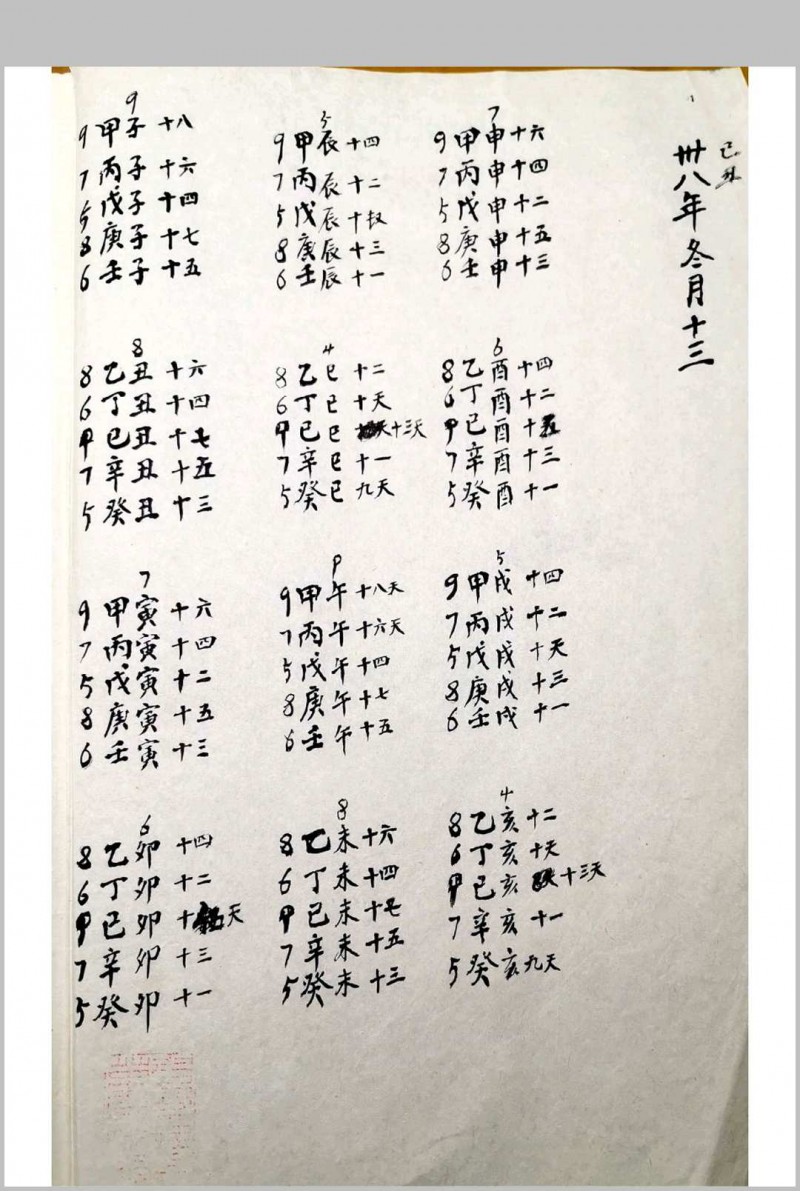 己丑
卅八年冬月十三
9
9甲子十八
7丙子十六
5戊子十四
8庚子十七
6壬子十五
8
8乙丑十六
6丁丑十四
甲己丑十七
7辛丑十五
5癸丑十三
7
9甲寅十六
7丙寅十四
5戊寅十二
8庚寅十五
6壬寅十三
6
8乙卯十四
6丁卯十二
甲己卯十天
7辛卯十三
5癸卯十一
5
9甲辰十四
7丙辰十二
5戊辰十
8庚辰十三
6壬辰十一
4
8乙巳十二
6丁巳十天
甲己巳十三天
7辛巳十一
5癸巳九天
9
9甲午十八天
7丙午十六天
5戊午十四
8庚午十七
6壬午十五
8
8乙未十六
6丁未十四
甲己未十七
7辛未十五
5癸未十三
7
9甲申十六
7丙申十四
5戊申十二
8庚申十五
6壬申十三
6
8乙酉十四
6丁酉十二
甲己酉十五
7辛酉十三
5癸酉十一
5
9甲戌十四
7丙戌十二
5戊戌十天
8庚戌十三
6壬戌十一
4
8乙亥十二
6丁亥十天
甲己亥十三天
7辛亥十一
5癸亥九天